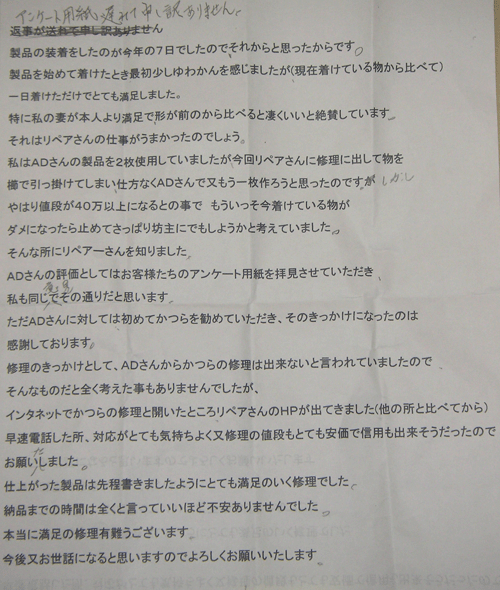 アンケート用紙遅れて申し訳ありません。
返事が送れて申し訳ありません
製品の装着をしたのが今年の7日でしたのでそれからと思ったからです。
製品を始めて着けたとき最初少しゆわかんを感じましたが(現在着けている物から比べて)
一日着けただけでとても満足しました。
特に私の妻が本人より満足で形が前のから比べると凄くいいと絶賛しています。
それはリペアさんの仕事がうまかったのでしょう。
私はADさんの製品を2枚使用していましたが今回リペアさんに修理に出して物を
櫛で引っ掛けてしまい仕方なくADさんで又もう一枚作ろうと思ったのですが しかし
やはり値段が40万以上になるとの事で もういっそ今着けている物が
ダメになったら止めてさっぱり坊主にでもしようかと考えていました。
そんな所にリペアーさんを知りました。
ADさんの評価としてはお客様たちのアンケート用紙を拝見させていただき
私も同じ意見でその通りだと思います。
ただADさんに対しては初めてかつらを勧めていただき、そのきっかけになったのは
感謝しております。
修理のきっかけとして、ADさんからかつらの修理は出来ないと言われていましたので
そんなものだと全く考えた事もありませんでしたが、
インタネットでかつらの修理と開いたところリペアさんのHPが出てきました(他の所と比べてから)
早速電話した所、対応がとても気持ちよく又修理の値段もとても安価で信用も出来そうだったので
お願いしました。
仕上がった製品は先程書きましたようにとても満足のいく修理でした。
納品までの時間は全くと言っていいほど不安ありませんでした。
本当に満足の修理有難うございます。
今後又お世話になると思いますのでよろしくお願いいたします